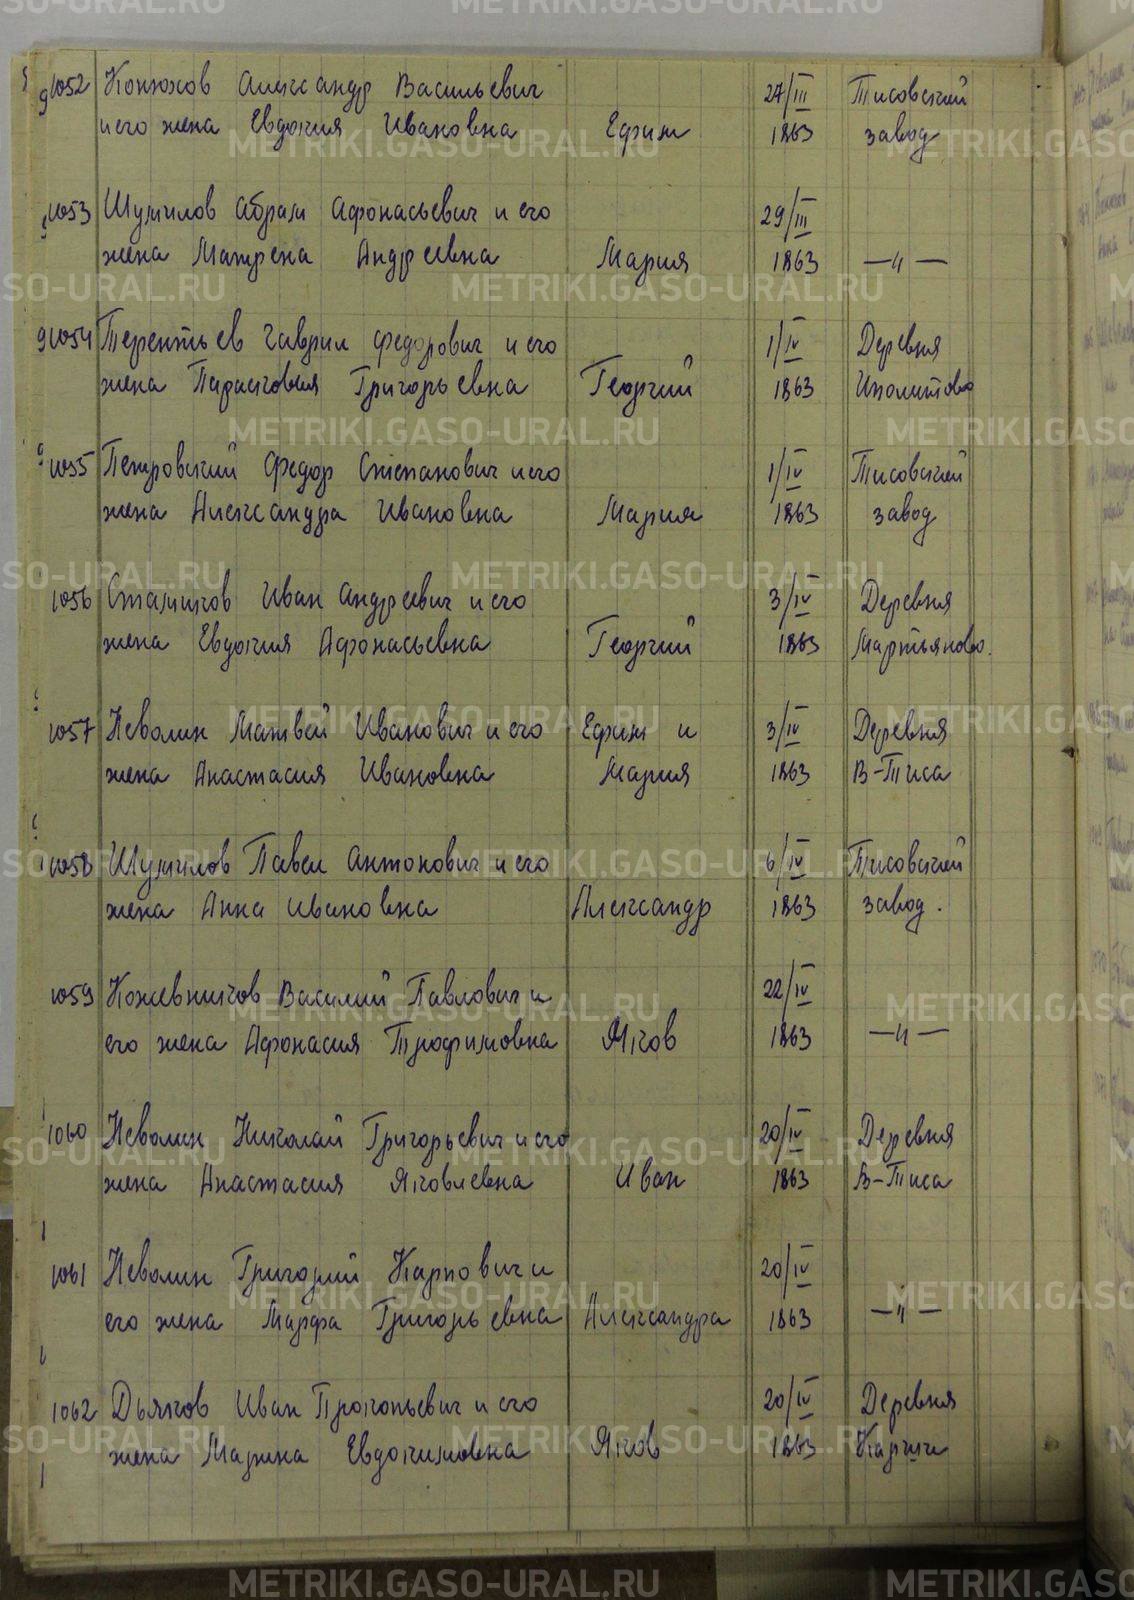 1052 Конюхов Александр Васильевич 27/III Тисовский
и его жена Евдокия Ивановна Ефим 1863 завод
1053 Шумилов Абрам Афонасьевич и его 29/III
жена Матрена Андреевна Мария 1863 —„—
1054 Терентьев Гаврил Федорович и его 1/IV Деревня
жена Парасковья Григорьевна Георгий 1863 Иполитово
1055 Петровский Федор Степанович и его 1/IV Тисовский
жена Александра Ивановна Мария 1863 завод
1056 Стамиков Иван Андреевич и его 3/IV Деревня
жена Евдокия Афонасьевна Георгий 1863 Мартьяново.
1057 Неволин Матвей Иванович и его Ефим и 3/IV Деревня
жена Анастасия Ивановна Мария 1863 В-Тиса
1058 Шумилов Павел Антонович и его 6/IV Тисовский
жена Анна Ивановна Александр 1863 завод.
1059 Кожевников Василий Павлович и 22/IV
его жена Афонасия Трофимовна Яков 1863 —„—
1060 Неволин Николай Григорьевич и его 20/IV Деревня
жена Анастасия Яковлевна Иван 1863 В-Тиса
1061 Неволин Григорий Карпович и 20/IV
его жена Марфа Григорьевна Александра 1863 —„—
1062 Дьяков Иван Прокопьевич и его 20/IV Деревня
жена Марина Евдокимовна Яков 1863 Каргили
METRIKI.GASO-URAL.RU